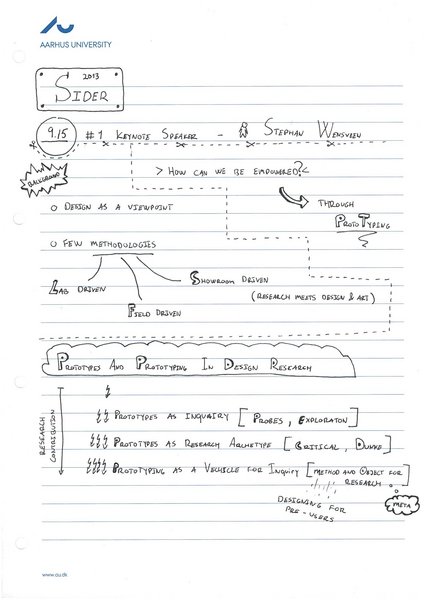 AARHUS UNIVERSITY
2013
SIDER
9.15 #1 KEYNOTE SPEAKER - STEPHAN WENSVEEN
BACKGROUND
> HOW CAN WE BE EMPOWERED? <
THROUGH
PROTOTYPING
O DESIGN AS A VIEWPOINT
O FEW METHODOLOGIES
LAB DRIVEN
FIELD DRIVEN
SHOWROOM DRIVEN
(RESEARCH MEETS DESIGN & ART)
PROTOTYPES AND PROTOTYPING IN DESIGN RESEARCH
RESEARCH CONTRIBUTION
PROTOTYPES AS INQUIRY [PROBES, EXPLORATON]
PROTOTYPES AS RESEARCH ARCHETYPE [CRITICAL, DUNNE]
PROTOTYPING AS A VEHICLE FOR INQUIRY [METHOD AND OBJECT FOR
RESEARCH]
META
DESIGNING FOR
PRE-USERS
www.au.dk